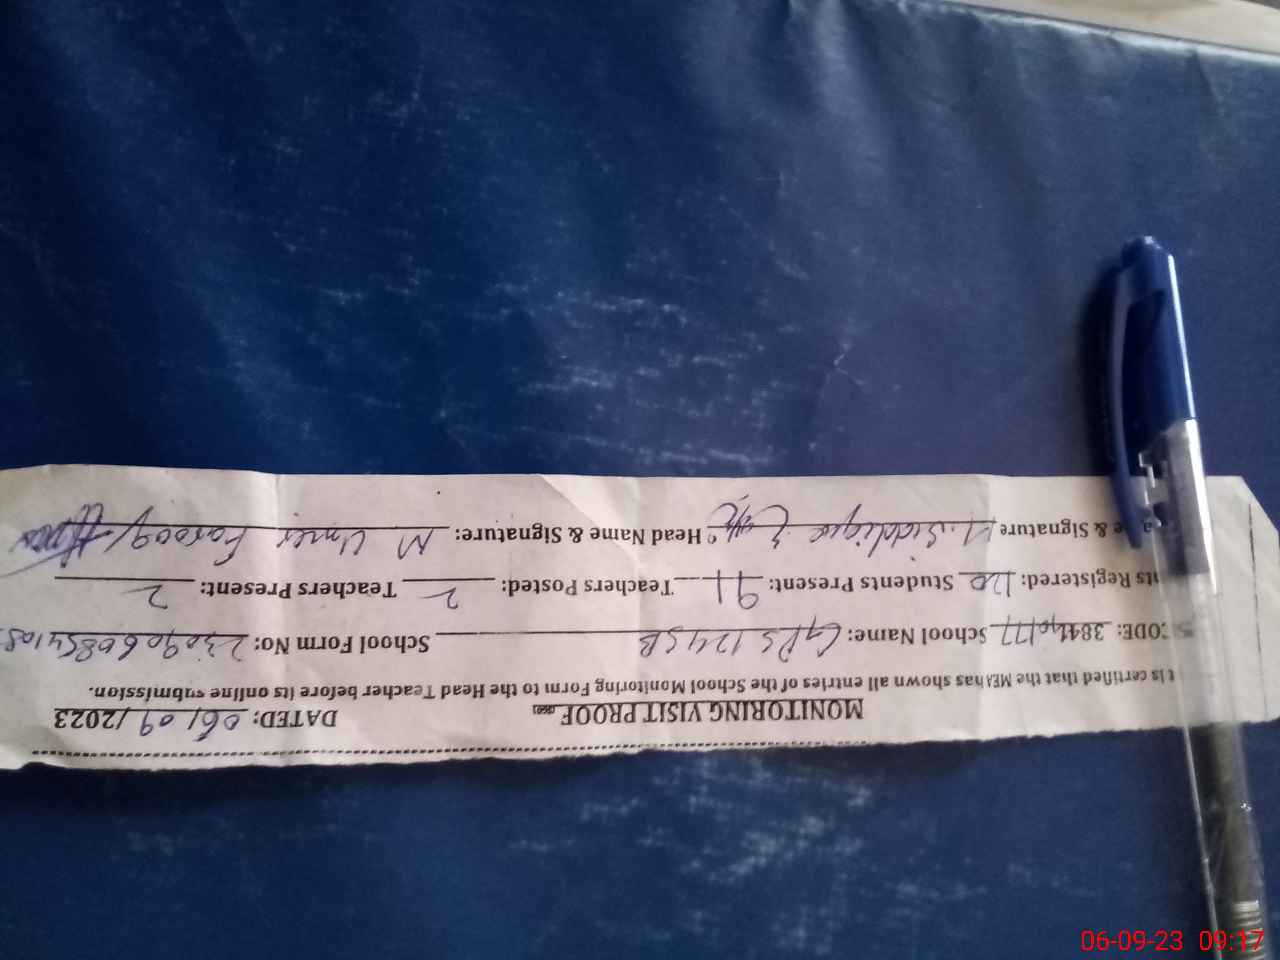 MONITORING VISIT PROOF DATED: 06/09/2023
is certified that the MEA has shown all entries of the School Monitoring Form to the Head Teacher before its online submission.
CODE: School Name: GPS 124 SB School Form No:
nts Registered: 120 Students Present: 91 Teachers Posted: 2 Teachers Present: 2
e & Signature M. Siddique Head Name & Signature: M Umer Farooq
06-09-23 09:17